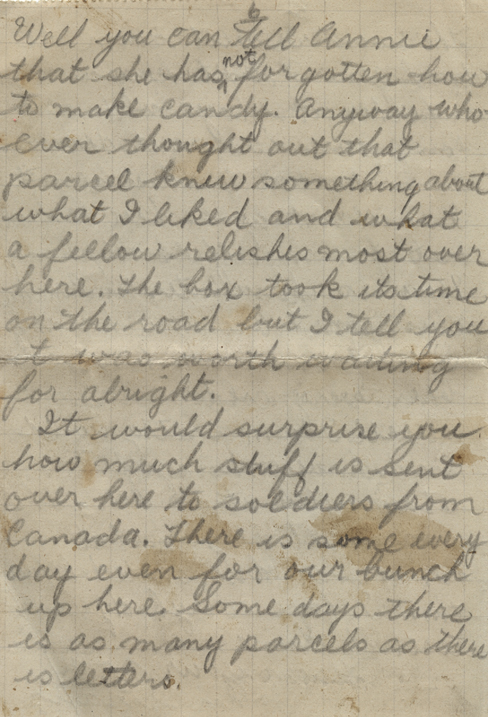 6
Well you can tell Annie
that she has not forgotten how
to make candy. Anyway who
ever thought out that
parcel knew something about
what I liked and what
a fellow relishes most over
here. The box took its time
on the road but I tell you
t was worth waiting
for alright.
It would surprise you
how much stuff is sent
over here to soldiers from
Canada. There is some every
day even for our bunch
up here. Some days there
is as many parcels as there
is letters.